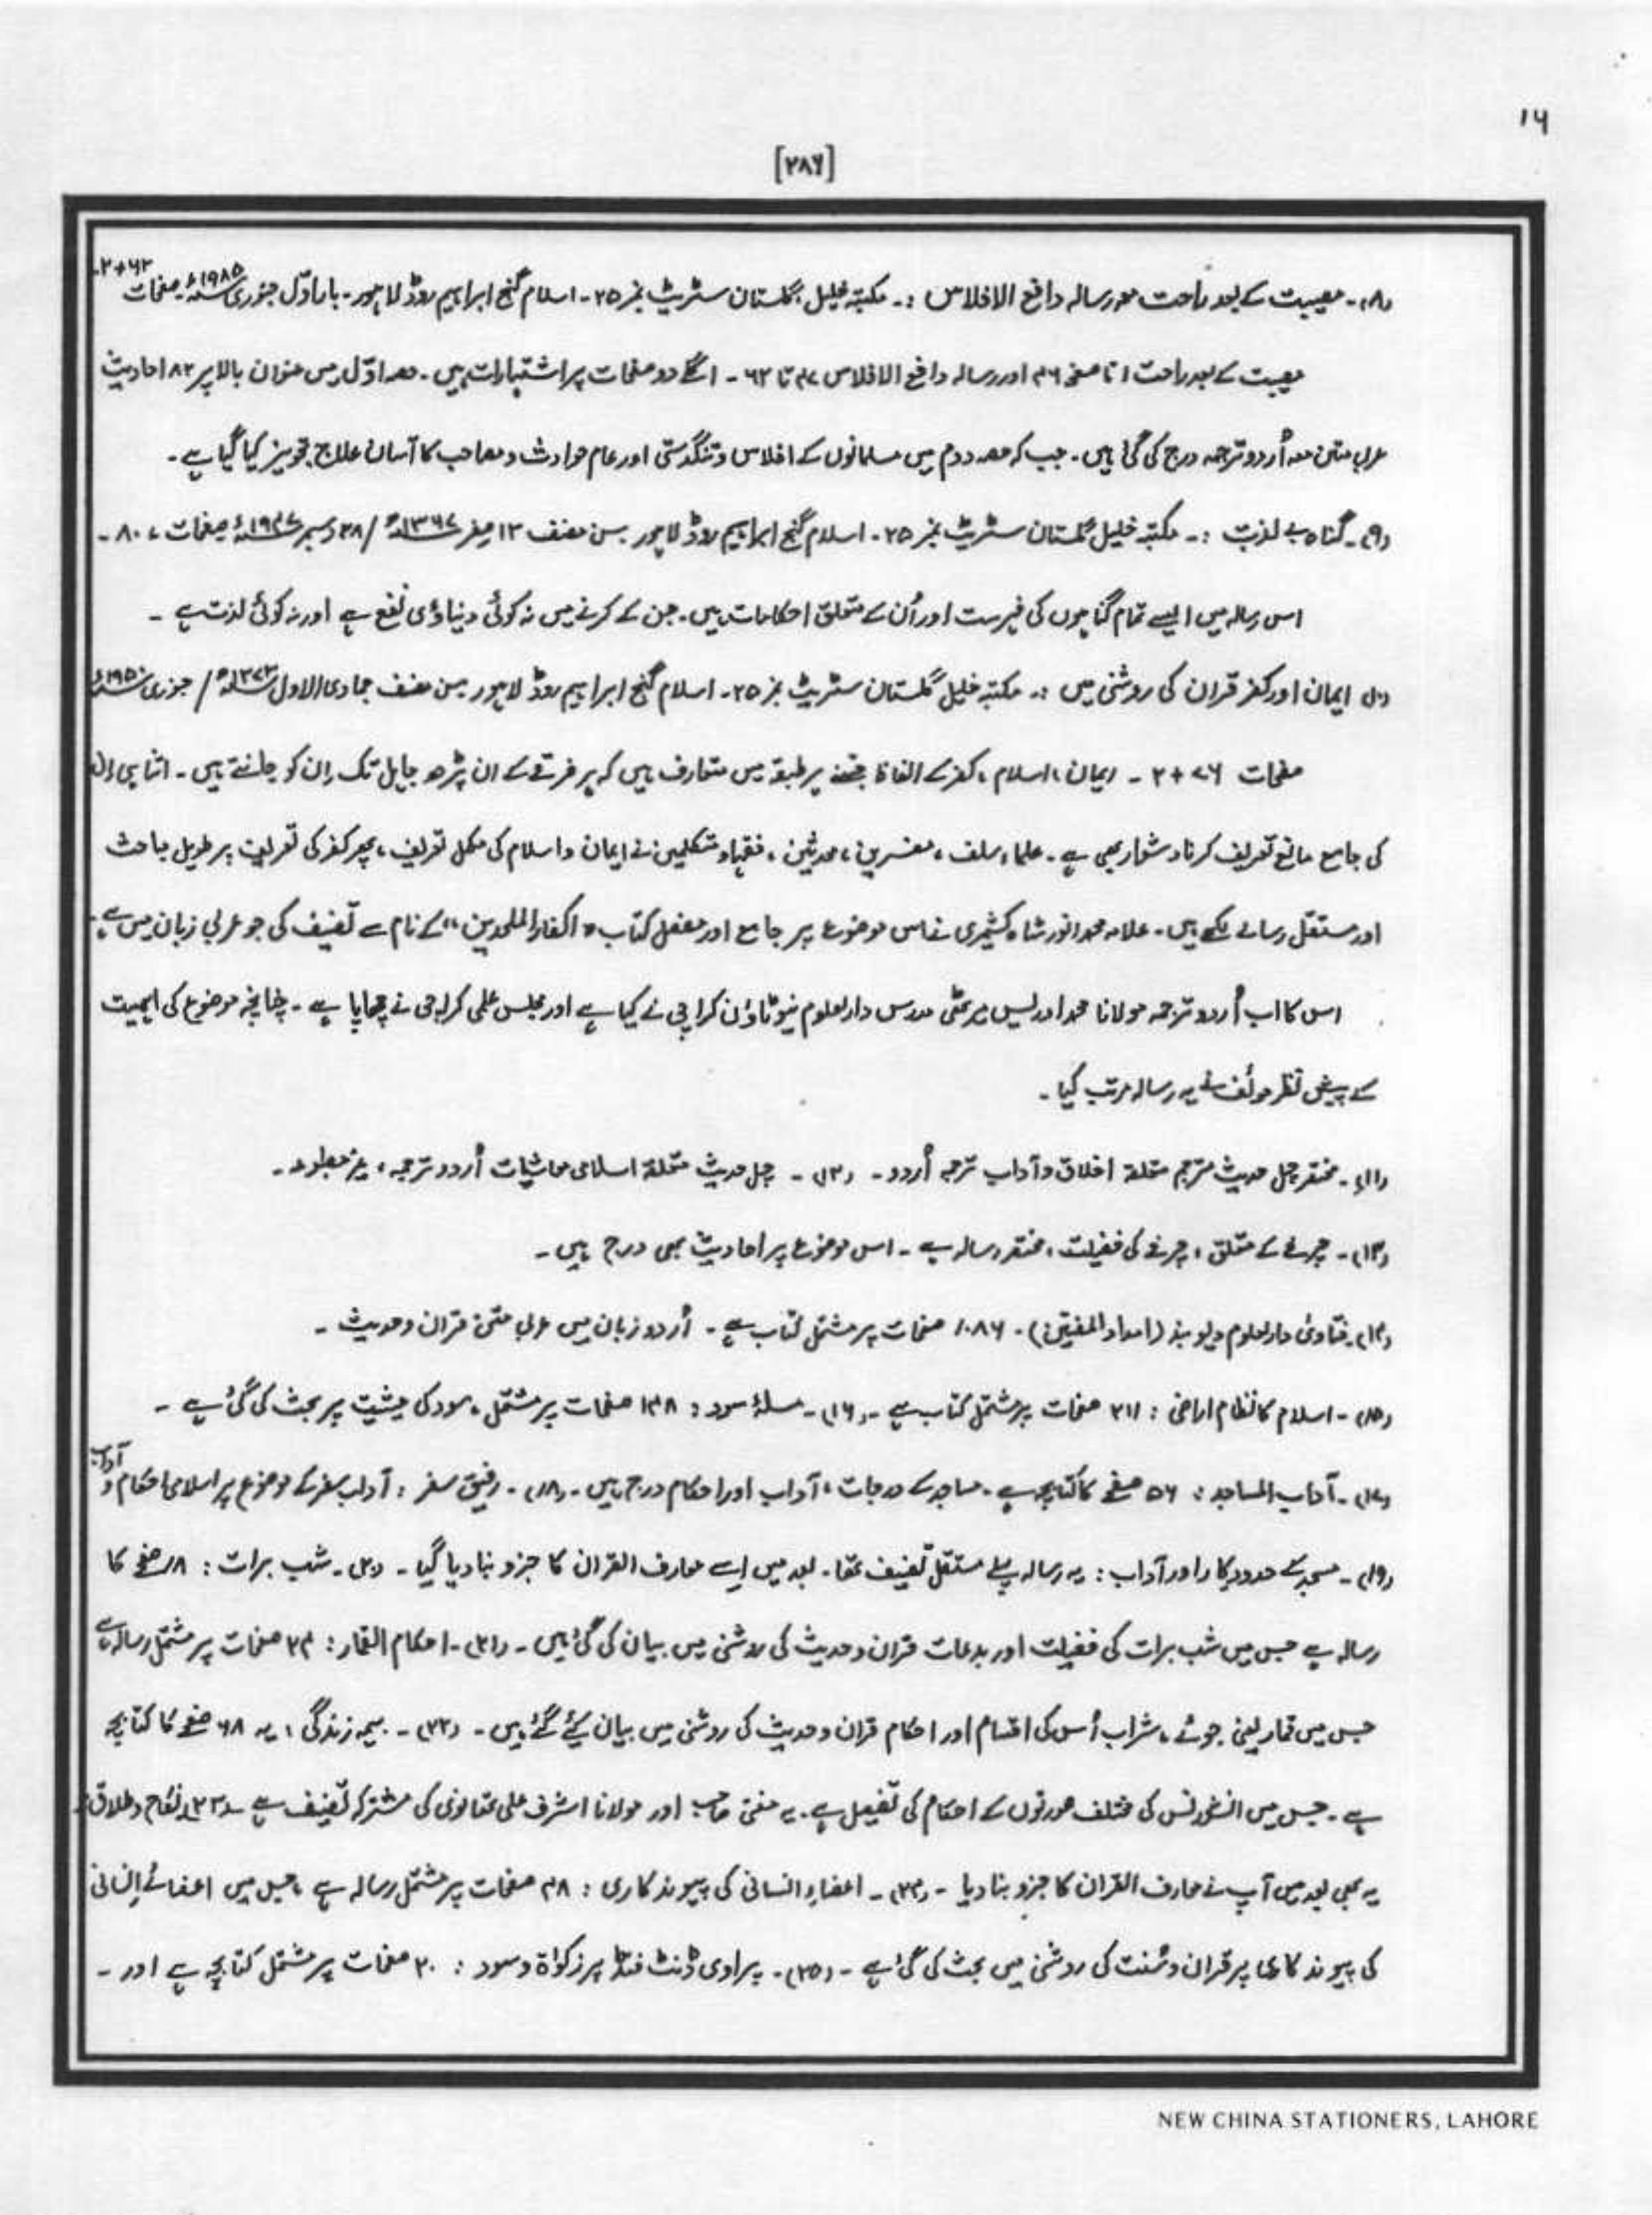 ۱۶
[۲۸۶]
(۸)۔ مصیبت کے بعد راحت معہ رسالہ دافع الافلاس :۔ مکتبہ خلیل گلستان سٹریٹ نمبر ۲۵۔ اسلام گنج ابراہیم روڈ لاہور۔ بار اوّل جنوری ۱۹۸۵ء صفحات ۶۲+۲۔
مصیبت کے بعد راحت ۱ تا صفحہ ۴۶ اور رسالہ دافع الافلاس ۴۷ تا ۶۲ ۔ اگلے دو صفحات پر اشتہارات ہیں۔ حصہ اوّل میں عنوان بالا پر ۸۲ احادیث
عربی متن معہ اُردو ترجمہ درج کی گئی ہیں۔ جب کہ حصہ دوم میں مسلمانوں کے افلاس و تنگدستی اور عام حوادث و مصاحب کا آسان علاج تجویز کیا گیا ہے۔
(۹)۔ گناہ بے لذت :۔ مکتبہ خلیل گلستان سٹریٹ نمبر ۲۵۔ اسلام گنج ابراہیم روڈ لاہور۔ سن مصنف ۱۳ صفر ۱۳۶۷ھ / ۲۸ دسمبر ۱۹۴۷ء صفحات ، ۸۰ ۔
اس رسالہ میں ایسے تمام گناہوں کی فہرست اور اُن کے متعلق احکامات ہیں۔ جن کے کرنے میں نہ کوئی دنیاوٴی نفع ہے اور نہ کوئی لذت ہے ۔
(۱۰) ایمان اور کفر قران کی روشنی میں :۔ مکتبہ خلیل گلستان سٹریٹ نمبر ۲۵۔ اسلام گنج ابراہیم روڈ لاہور سن مصنف جمادی الاول ۱۳۷۳ھ / جنوری
صفحات ۷۶ + ۲ ۔ ایمان ، اسلام ، کفر کے الفاظ جتنے ہر طبقہ میں متعارف ہیں کہ ہر فرقے کے ان پڑھ جاہل تک اِن کو جانتے ہیں ۔ اتنا ہی اِن
کی جامع مانع تعریف کرنا دشوار بھی ہے۔ علماء سلف ، مفسرین ، محدثین ، فقہاو متکلمین نے ایمان و اسلام کی مکمل تعریف ، پھر کفر کی تعریف پر طویل مباحث
اور مستقل رسالے لکھے ہیں۔ علامہ محمد انور شاہ کشمیری نے اس موضوع پر جامع اور مفصل کتاب "اکفار الملحدین" کے نام سے تصنیف کی جو عربی زبان میں ہے۔
اس کا اب اُردو ترجمہ مولانا محمد ادریس میرٹھی مدرس دارلعلوم نیو ٹاؤن کراچی نے کیا ہے اور مجلس علمی کراچی نے چھاپا ہے ۔ چنانچہ موضوع کی اہمیت
کے پیش نظر موٴلف نے یہ رسالہ مرتب کیا ۔
(۱۱)۔ مختصر چہل حدیث مترجم متعلقہ اخلاق و آداب ترجمہ اُردو ۔ (۱۲) ۔ چہل حدیث متعلقہ اسلامی معاشیات اُردو ترجمہ ، غیر مطبوعہ ۔
(۱۳)۔ چرغے کے متعلق ، چرغے کی فضیلت ، مختصر رسالہ ہے ۔ اس موضوع پر احادیث بھی درج ہیں ۔
(۱۴)۔ فتاویٰ دارلعلوم دیوبند (امداد المفیتین) ۔ ۱۰۸۶ صفحات پر مشتمل کتاب ہے ۔ اُردو زبان میں عربی متن قران و حدیث ۔
(۱۵) ۔ اسلام کا نظام اراضی : ۲۱۱ صفحات پر مشتمل کتاب ہے ۔ (۱۶)۔ مسلۂ سود : ۱۳۸ صفحات پر مشتمل ، سود کی حیثیت پر بحث کی گئی ہے ۔
(۱۷)۔ آداب المساجد : ۵۶ صفحے کا کتابچہ ہے ۔ مساجد کے درجات ، آداب اور احکام درج ہیں ۔ (۱۸)۔ رفیق سفر : آداب سفر کے موضوع پر اسلامی احکام و آداب
(۱۹)۔ مسجد کے حدود کار اور آداب : یہ رسالہ پہلے مستقل تصنیف تھا۔ بعد میں اِسے معارف القران کا جزو بنا دیا گیا ۔ (۲۰)۔ شب برات : ۱۸ صفحے کا
رسالہ ہے جس میں شب برات کی فضیلت اور بدعات قران و حدیث کی روشنی میں بیان کی گئی ہیں ۔ (۲۱)۔ احکام القمار : ۲۴ صفحات پر مشتمل رسالہ ہے
جس میں قمار یعنی جوئے ، شراب اُس کی اقسام اور احکام قران و حدیث کی روشنی میں بیان کیے گئے ہیں ۔ (۲۲) ۔ بیمہ زندگی : یہ ۶۸ صفحے کا کتابچہ
ہے ۔ جس میں انشورنس کی مختلف صورتوں کے احکام کی تفصیل ہے ۔ یہ مفتی صاحب اور مولانا اشرف علی تھانوی کی مشترکہ تصنیف ہے (۲۳) نکاح و طلاق :
یہ بھی بعد میں آپ نے معارف القران کا جزو بنا دیا ۔ (۲۴)۔ اعضاءِ انسانی کی پیوند کاری : ۴۸ صفحات پر مشتمل رسالہ ہے ، جس میں اعضائے انسانی
کی پیوند کاری پر قران و سُنت کی روشنی میں بحث کی گئی ہے ۔ (۲۵)۔ پراوی ڈنٹ فنڈ پر زکواة و سود : ۲۰ صفحات پر مشتمل کتابچہ ہے اور ۔
NEW CHINA STATIONERS, LAHORE